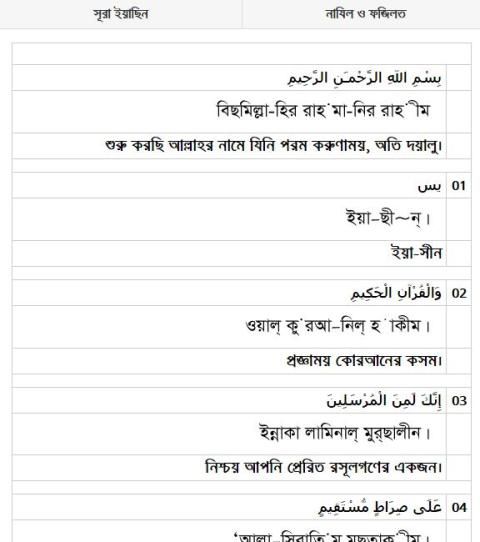 সূরা ইয়াছিন
নাযিল ও ফজিলত
بِسْمِ اللّهِ الرَّحْمـَنِ الرَّحِيمِ
বিছমিল্লা-হির রাহ˙মা-নির রাহ˙ীম
শুরু করছি আল্লাহর নামে যিনি পরম করুণাময়, অতি দয়ালু।
يس 01
ইয়া–ছী～ন্।
ইয়া-সীন
وَالْقُرْآنِ الْحَكِيمِ 02
ওয়াল্ কু˙রআ–নিল্ হ˙াকীম।
প্রজ্ঞাময় কোরআনের কসম।
إِنَّكَ لَمِنَ الْمُرْسَلِينَ 03
ইন্নাকা লামিনাল্ মুর্ছালীন।
নিশ্চয় আপনি প্রেরিত রসূলগণের একজন।
عَلَى صِرَاطٍ مُّسْتَقِيمٍ 04